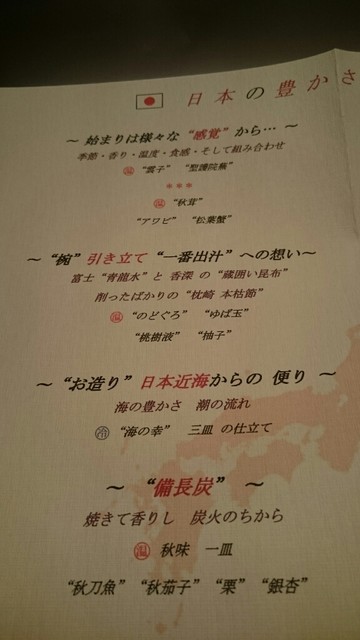 日本の豊かさ
～ 始まりは様々な “感覚” から… ～
季節・香り・温度・食感・そして組み合わせ
温 “雲子” “聖護院蕪”
***
温 “秋茸”
“アワビ” “松葉蟹”
～ “椀” 引き立て “一番出汁” への想い～
富士 “青龍水” と 香深 の “蔵囲い昆布”
削ったばかりの “枕崎 本枯節”
温 “のどぐろ” “ゆば玉”
“桃樹液” “柚子”
～ “お造り” 日本近海からの 便り ～
海の豊かさ 潮の流れ
冷 “海の幸” 三皿 の仕立て
～ “備長炭” ～
焼きて香りし 炭火のちから
温 秋味 一皿
“秋刀魚” “秋茄子” “栗” “銀杏”